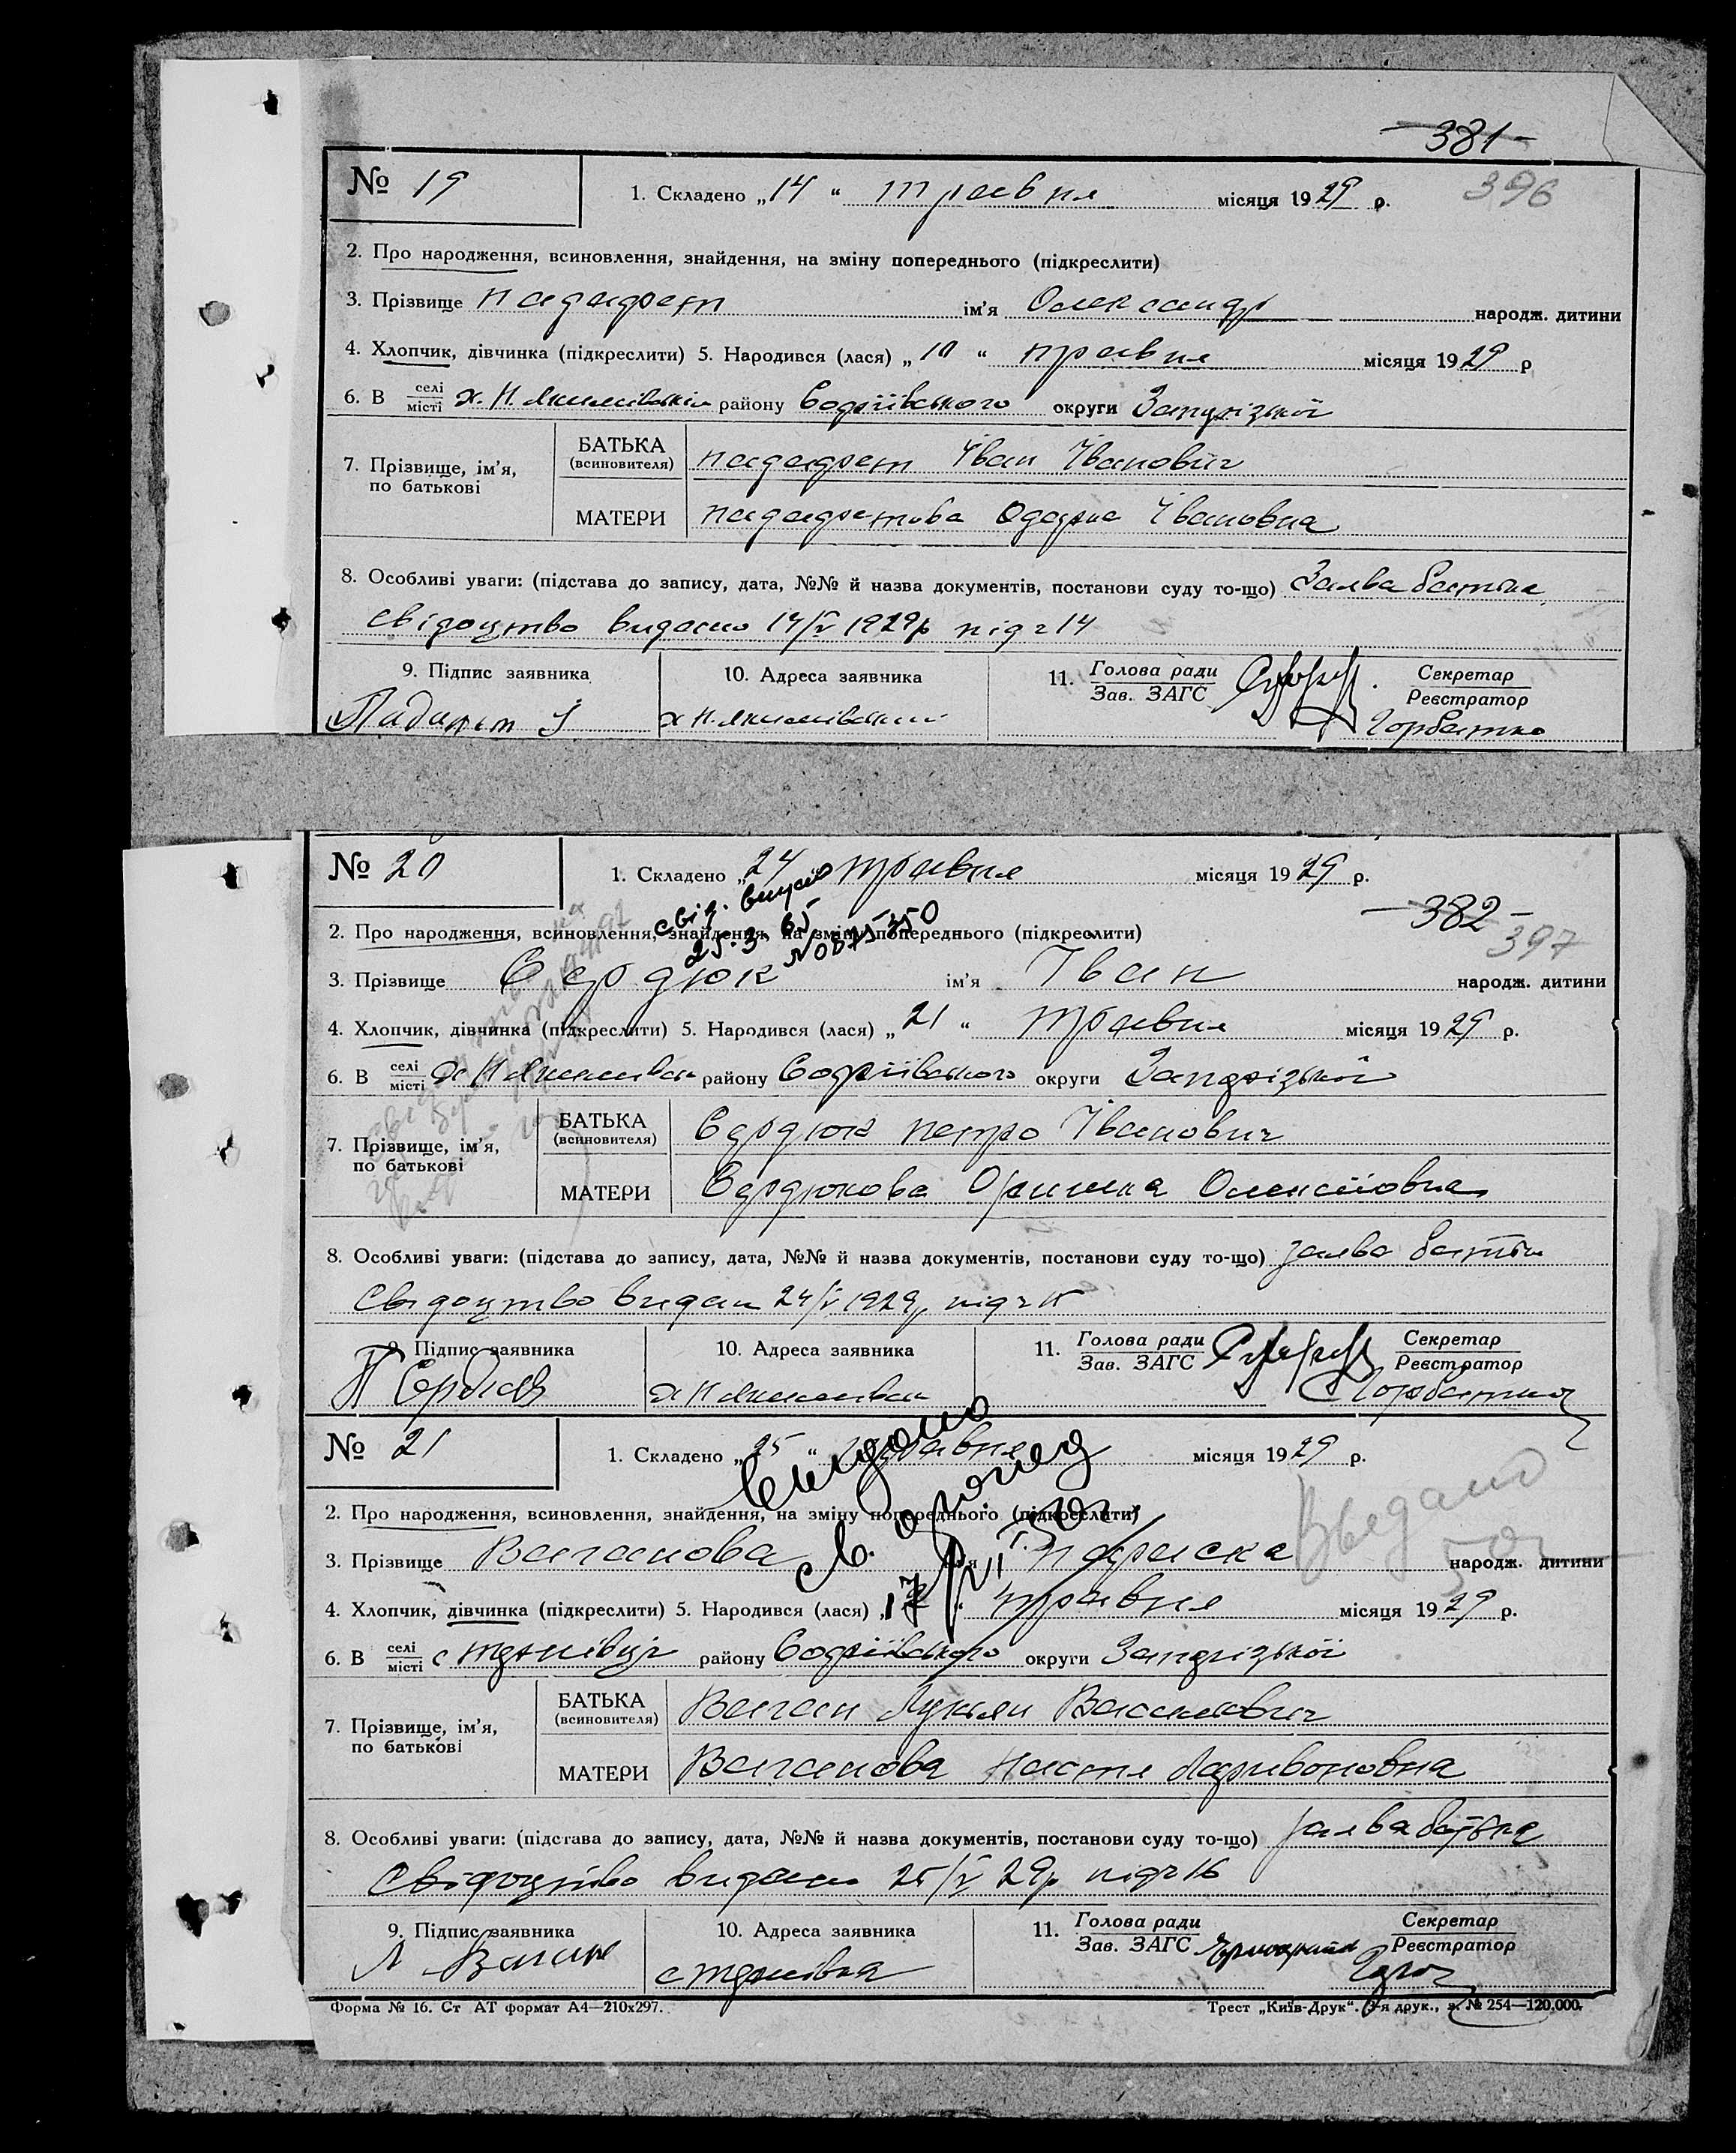 381
№ 19
1. Складено „14“ травня місяця 1929 р.
396
2. Про народження, всиновлення, знайдення, на зміну попереднього (підкреслити)
3. Прізвище ім’я Олександр народж. дитини
4. Хлопчик, дівчинка (підкреслити) 5. Народився (лася) „10“ травня місяця 1929 р
6. В селі місті х. Н. району округи Запорізької
7. Прізвище, ім’я, по батькові
БАТЬКА (всиновителя) Іван Іванович
МАТЕРИ Одарка Івановна
8. Особливі уваги: (підстава до запису, дата, №№ й назва документів, постанови суду то-що) Заява батька
свідоцтво видано 14/V 1929р під ч 14
9. Підпис заявника
10. Адреса заявника
11. Голова ради Зав. ЗАГС
Секретар Реєстратор
х Н.
Горбатко
№ 20
1. Складено „24 травня місяця 1929 р.
382
397
2. Про народження, всиновлення, знайдення, на зміну попереднього (підкреслити)
25.3.65
3. Прізвище Сердюк ім’я Іван народж. дитини
4. Хлопчик, дівчинка (підкреслити) 5. Народився (лася) „21“ травня місяця 1929 р.
6. В селі місті х Н району округи Запорізької
7. Прізвище, ім’я, по батькові
БАТЬКА (всиновителя) Сердюк петро Іванович
МАТЕРИ Сердюкова Олексіовна
8. Особливі уваги: (підстава до запису, дата, №№ й назва документів, постанови суду то-що) заява батька
Свідоцтво видан 24/V 1929р під ч 15
9. Підпис заявника
10. Адреса заявника
11. Голова ради Зав. ЗАГС
Секретар Реєстратор
П Сердюк
х Н
№ 21
1. Складено „25“ травня місяця 1929 р.
Видано
2. Про народження, всиновлення, знайдення, на зміну попереднього (підкреслити)
3. Прізвище Ваганова ім’я параска народж. дитини
4. Хлопчик, дівчинка (підкреслити) 5. Народився (лася) „17“ травня місяця 1929 р.
6. В селі місті с району округи Запорізької
7. Прізвище, ім’я, по батькові
БАТЬКА (всиновителя) Ваган Лукьян Васильович
МАТЕРИ Ваганова Настя Ларивоновна
8. Особливі уваги: (підстава до запису, дата, №№ й назва документів, постанови суду то-що) заява батька
Свідоцтво видано 25/V 29р під ч 16
9. Підпис заявника
10. Адреса заявника
11. Голова ради Зав. ЗАГС
Секретар Реєстратор
Л Ваган
Форма № 16. Ст АТ формат А4—210х297.
Трест „Київ-Друк“. 3-я друк., з. № 254—120.000.